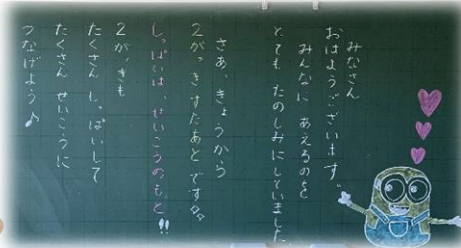 みなさん
おはようございます。
みんなに あえるのを
とても たのしみにしていました
さあ、きょうから
2がっきすたあとです
しっぱいは、せいこうのもと!!
2がっきも
たくさん しっぱいして
たくさん せいこうに
つなげよう♪